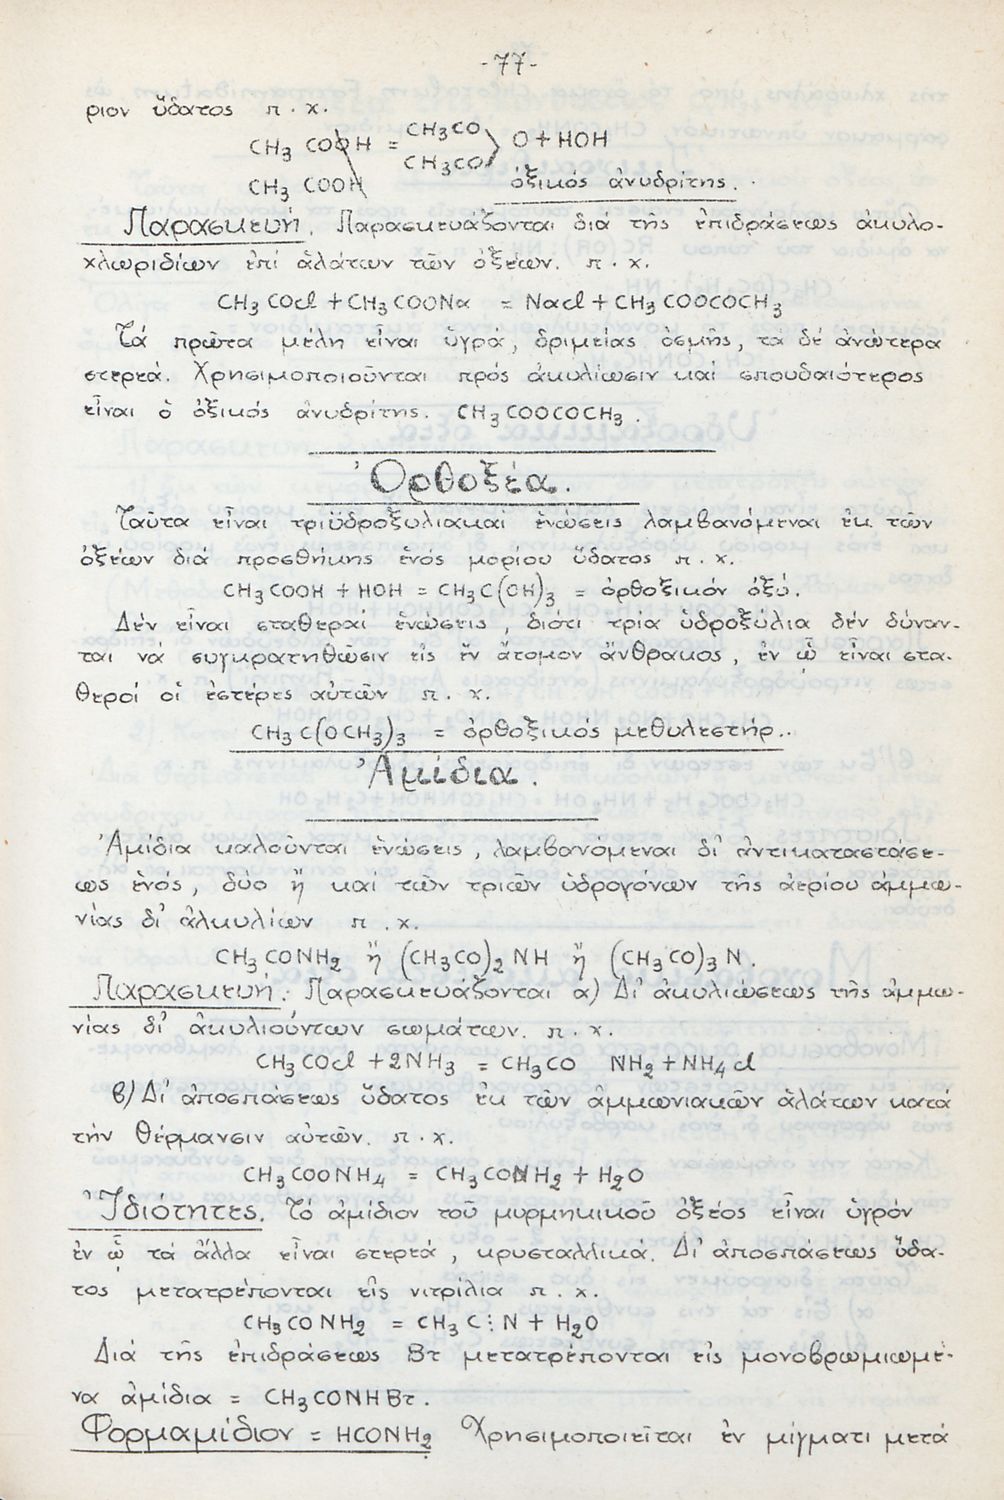 -77-
ριον ὕδατος π.χ.
CH3 COOH = CH3CO O + HOH
CH3 COOH CH3CO ὀξικός ἀνυδρίτης.
Παρασκευή. Παρασκευάζονται διά τῆς ἐπιδράσεως ἀκυλο-
χλωριδίων ἐπί ἁλάτων τῶν ὀξέων. π.χ.
CH3 COCl + CH3 COONa = NaCl + CH3 COOCOCH3
Τά πρῶτα μέλη εἶναι ὑγρά, δριμείας ὀσμῆς, τά δέ ἀνώτερα
στερεά. Χρησιμοποιοῦνται πρός ἀκυλίωσιν καί σπουδαιότερος
εἶναι ὁ ὀξικός ἀνυδρίτης. CH3COOCOCH3.
Ὀρθοξέα.
Ταῦτα εἶναι τριϋδροξυλιακαι ἑνώσεις λαμβανόμεναι ἐκ τῶν
ὀξέων διά προσθήκης ἑνός μορίου ὕδατος π.χ.
CH3COOH + HOH = CH3C(OH)3 = ὀρθοξικόν ὀξύ.
Δέν εἶναι σταθεραί ἑνώσεις, διότι τρία ὑδροξύλια δέν δύναν-
ται νά συγκρατηθῶσιν εἰς ἕν ἄτομον ἄνθρακος, ἐν ᾧ εἶναι στα-
θεροί οἱ ἐστέρες αὐτῶν π.χ.
CH3 C(OCH3)3 = ὀρθοξικός μεθυλεστήρ..
Ἀμίδια.
Ἀμίδια καλοῦνται ἑνώσεις, λαμβανόμεναι δι' ἀντικαταστάσε-
ως ἑνός, δύο ἤ καί τῶν τριῶν ὑδρογόνων τῆς ἀερίου ἀμμω-
νίας δι' ἀλκυλίων π.χ.
CH3 CONH2 ἤ (CH3CO)2 NH ἤ (CH3CO)3 N.
Παρασκευή: Παρασκευάζονται α) Δι' ἀκυλιώσεως τῆς ἀμμω-
νίας δι' ἀκυλιούντων σωμάτων. π.χ.
CH3COCl + 2NH3 = CH3CO NH2 + NH4 Cl
β) Δι' ἀποσπάσεως ὕδατος ἐκ τῶν ἀμμωνιακῶν ἁλάτων κατά
τήν θέρμανσιν αὐτῶν. π.χ.
CH3COONH4 = CH3CONH2 + H2O
Ἰδιότητες. Τό ἀμίδιον τοῦ μυρμηκικοῦ ὀξέος εἶναι ὑγρόν
ἐν ᾧ τά ἄλλα εἶναι στερεά, κρυσταλλικά. Δι' ἀποσπάσεως ὕδα-
τος μετατρέπονται εἰς νιτρίλια π.χ.
CH3CONH2 = CH3C⋮N + H2O
Διά τῆς ἐπιδράσεως Br μετατρέπονται εἰς μονοβρωμιωμέ-
να ἀμίδια = CH3CONHBr.
Φορμαμίδιον = HCONH2 Χρησιμοποιεῖται ἐν μίγματι μετά